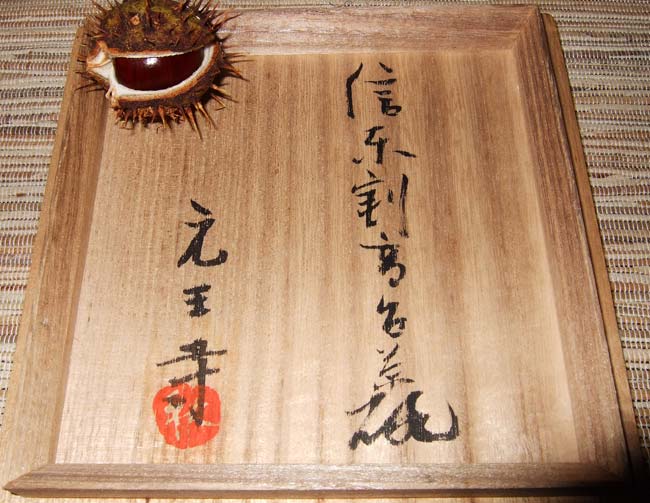 信楽割高台茶碗
元王